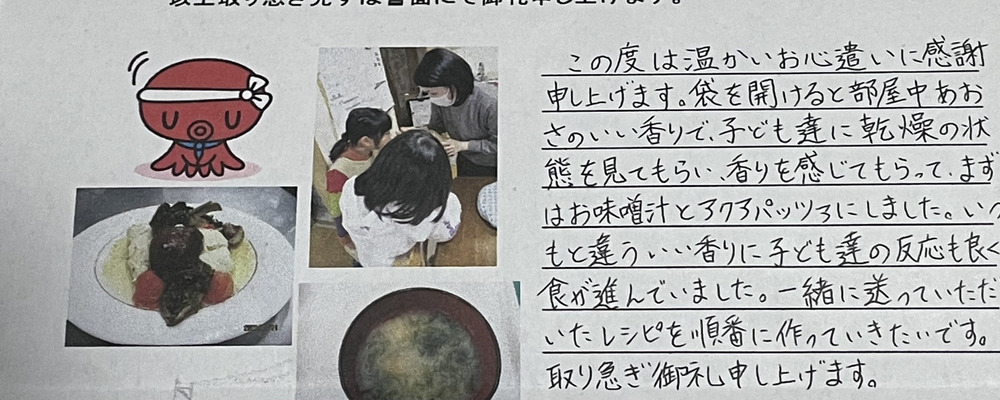 以上取り急ぎ先ずは書面にて御礼申し上げます。
この度は温かいお心遣いに感謝
申し上げます。袋を開けると部屋中あお
さのいい香りで、子ども達に乾燥の状
態を見てもらい、香りを感じてもらって、まず
はお味噌汁とアクアパッツアにしました。いつ
もと違ういい香りに子ども達の反応も良く
食が進んでいました。一緒に送っていただ
いたレシピを順番に作っていきたいです。
取り急ぎ御礼申し上げます。